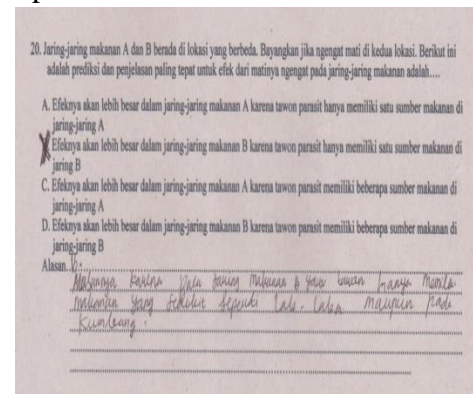 20. Jaring-jaring makanan A dan B berada di lokasi yang berbeda. Bayangkan jika ngengat mati di kedua lokasi. Berikut ini
adalah prediksi dan penjelasan paling tepat untuk efek dari matinya ngengat pada jaring-jaring makanan adalah….
A. Efeknya akan lebih besar dalam jaring-jaring makanan A karena tawon parasit hanya memiliki satu sumber makanan di
jaring-jaring A
Efeknya akan lebih besar dalam jaring-jaring makanan B karena tawon parasit hanya memiliki satu sumber makanan di
jaring B
C. Efeknya akan lebih besar dalam jaring-jaring makanan A karena tawon parasit memiliki beberapa sumber makanan di
jaring-jaring A
D. Efeknya akan lebih besar dalam jaring-jaring makanan B karena tawon parasit memiliki beberapa sumber makanan di
jaring-jaring B
Alasan B.
karena pada Jaring Makanan B hanya
makanan yang sedikit seperti lala-lala maupun pada
kumbang.